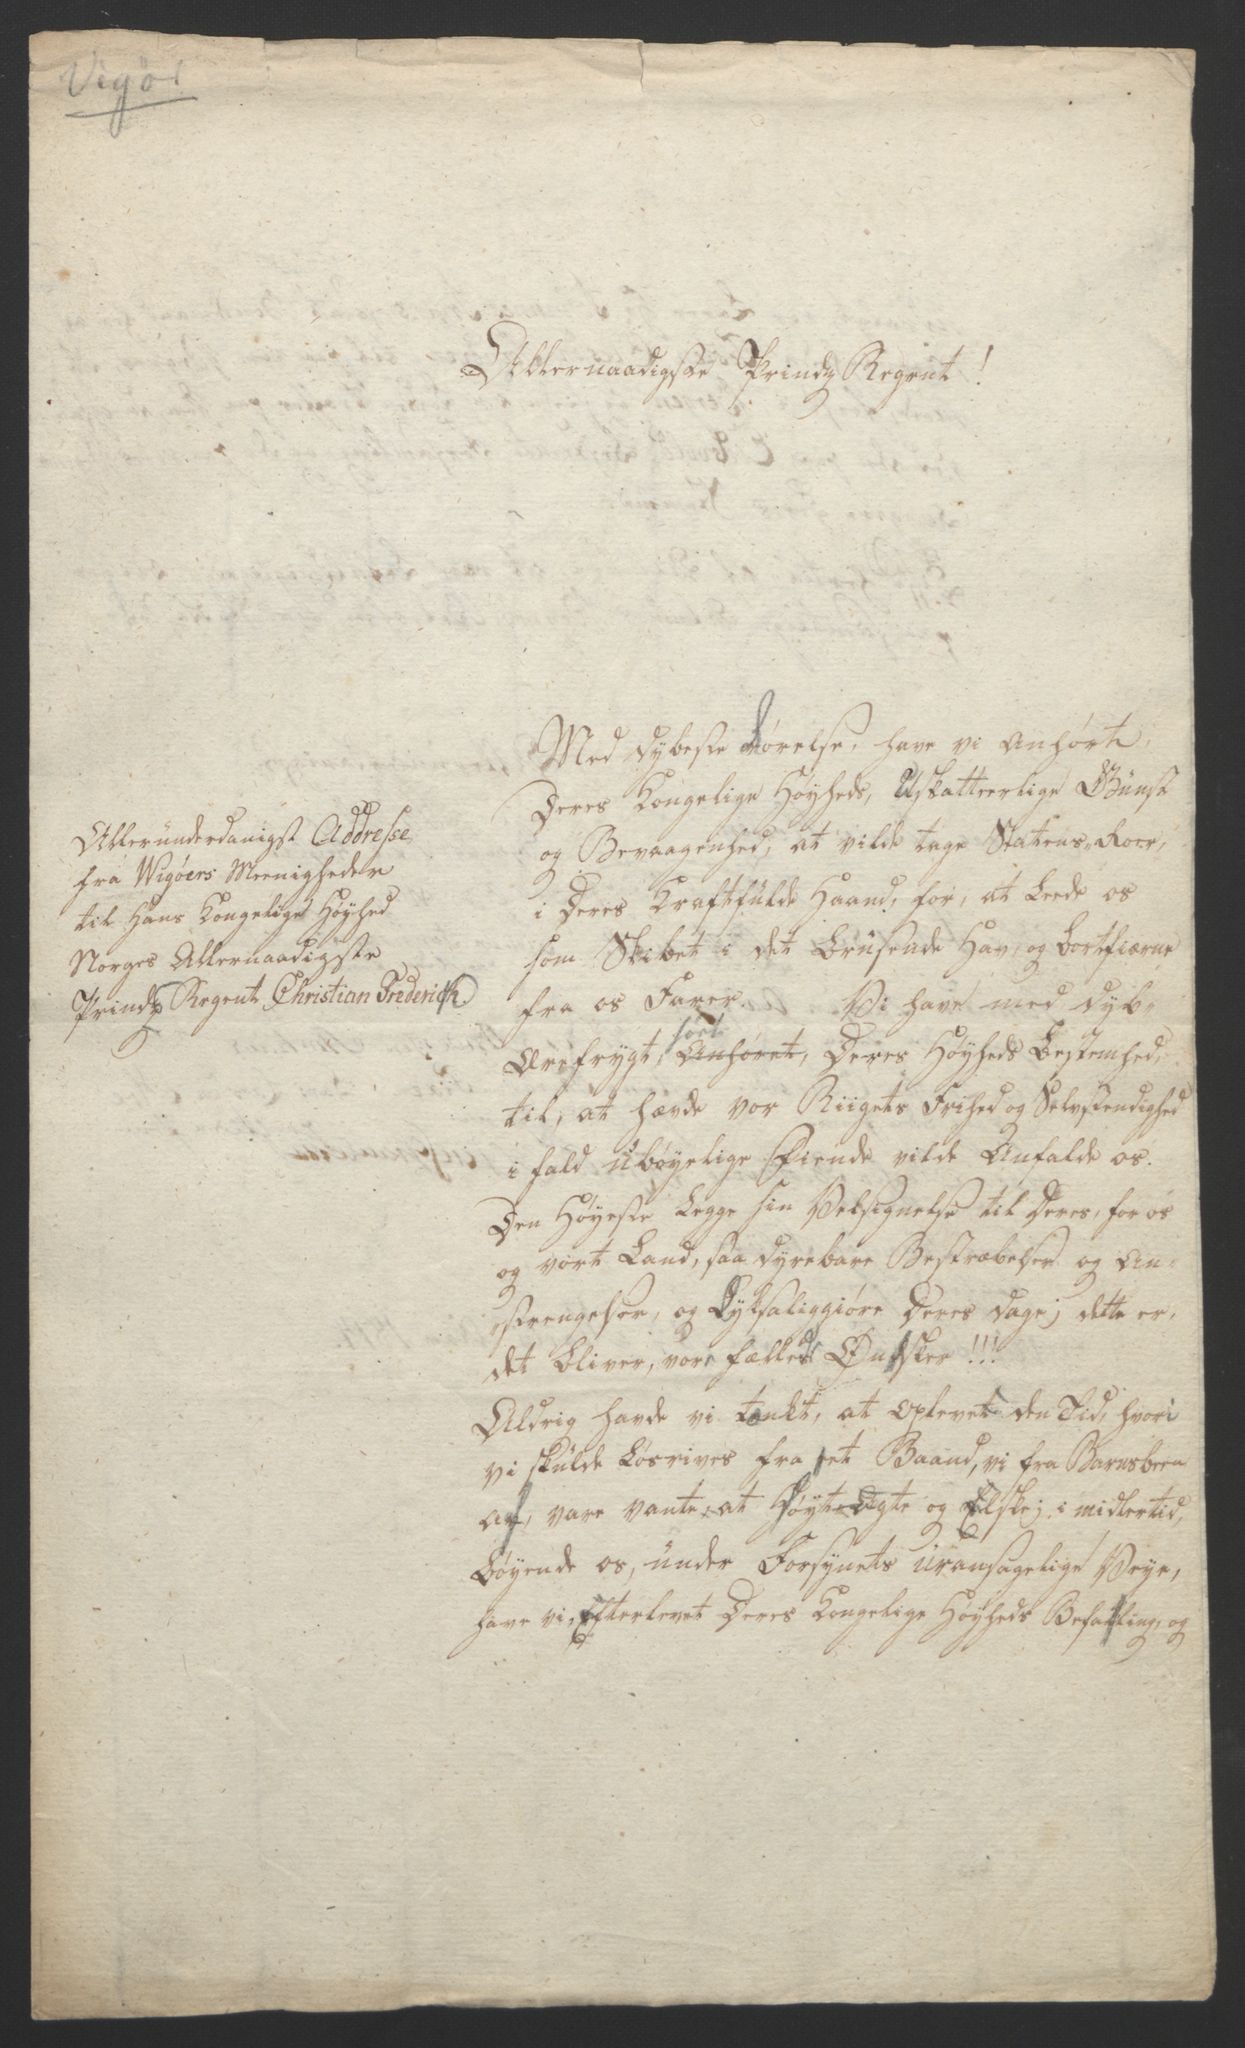 Vigør
Allernaadigste Prindz Regent!
Alleründerdanigst Addresse
fra Wigøers Meenigheder
til Hans Kongelige Høyhed
Norges Allernaadigste
Prindz Regent Christian Frederich.
Med dybeste Rørelse, have vi anhørt,
Deres Kongelige Høyheds, Uskatteerlige Günst
og Bevaagenhed, at vilde tage Statens Roer,
i Deres Kraftfülde Haand, for, at Leede os
som Skibet i det Brüsende Hav, og bortfierne
fra os Farer. Vi have med dyb
Ærefrygt, Anhøret, hørt Deres Høyheds Bestemhed,
til, at hævde vor Riigets Frihed og Selvstendighed
i fald übøyelige Fiende vilde Anfalde os.
Den Høyeste Legge sin Velsignelse til Deres, for os
og vort Land, saa dyrebare Bestræbelser og An-
strengelser, og Lyksaliggiøre Deres dage; dette er,
det bliver, vore fælleds Ønsker!!!
Aldrig havde vi tænkt, at oplevet den Tid, hvori
vi skulde Løsrives fra et Baand, vi fra Barnsbeen
af, vare vante at Høyt-Agte og Elske; i midlertid,
bøyende os, ünder Forsynets üransagelige Veye,
have vi Efterlevet Deres Kongelige Høyheds Befalling, og